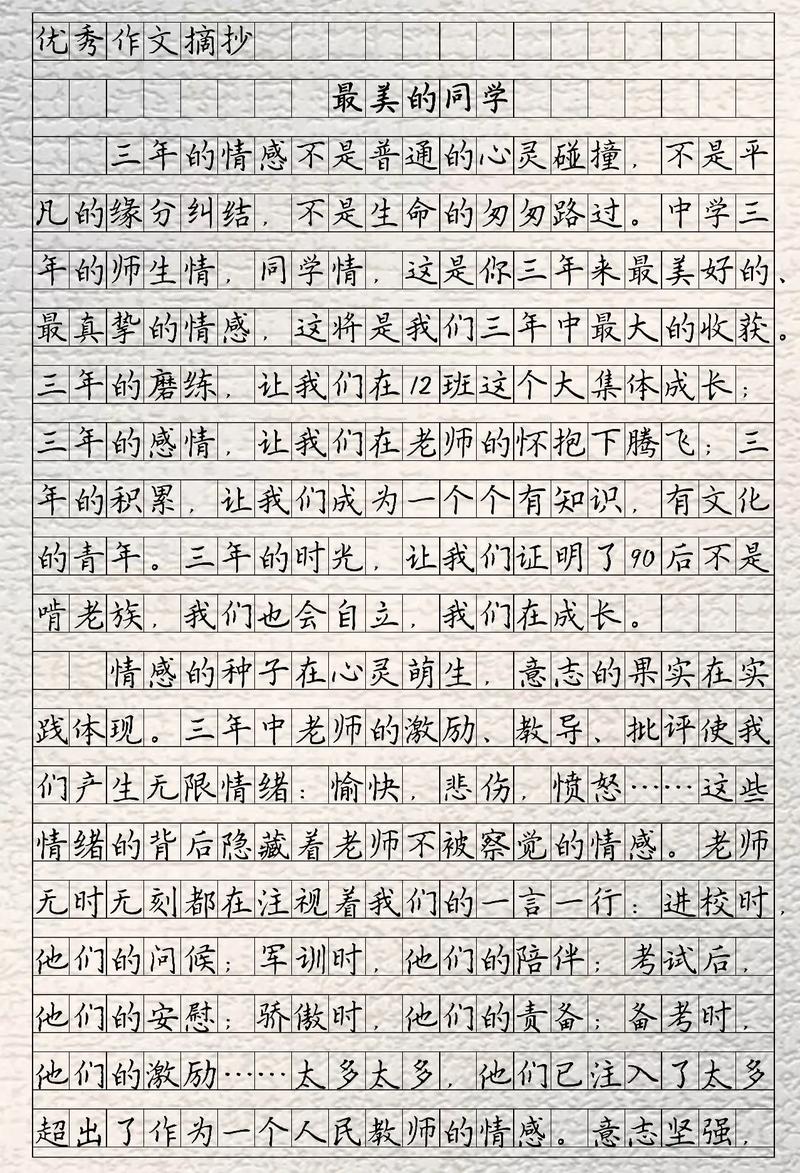 优秀作文摘抄
最美的同学
三年的情感不是普通的心灵碰撞，不是平
凡的缘分纠结，不是生命的匆匆路过。中学三
年的师生情，同学情，这是你三年来最美好的、
最真挚的情感，这将是我们三年中最大的收获。
三年的磨练，让我们在12班这个大集体成长；
三年的感情，让我们在老师的怀抱下腾飞；三
年的积累，让我们成为一个个有知识，有文化
的青年。三年的时光，让我们证明了90后不是
啃老族，我们也会自立，我们在成长。
情感的种子在心灵萌生，意志的果实在实
践体现。三年中老师的激励、教导、批评使我
们产生无限情绪：愉快，悲伤，愤怒……这些
情绪的背后隐藏着老师不被察觉的情感。老师
无时无刻都在注视着我们的一言一行：进校时，
他们的问候；军训时，他们的陪伴；考试后，
他们的安慰；骄傲时，他们的责备；备考时，
他们的激励……太多太多，他们已注入了太多
超出了作为一个人民教师的情感。意志坚强，